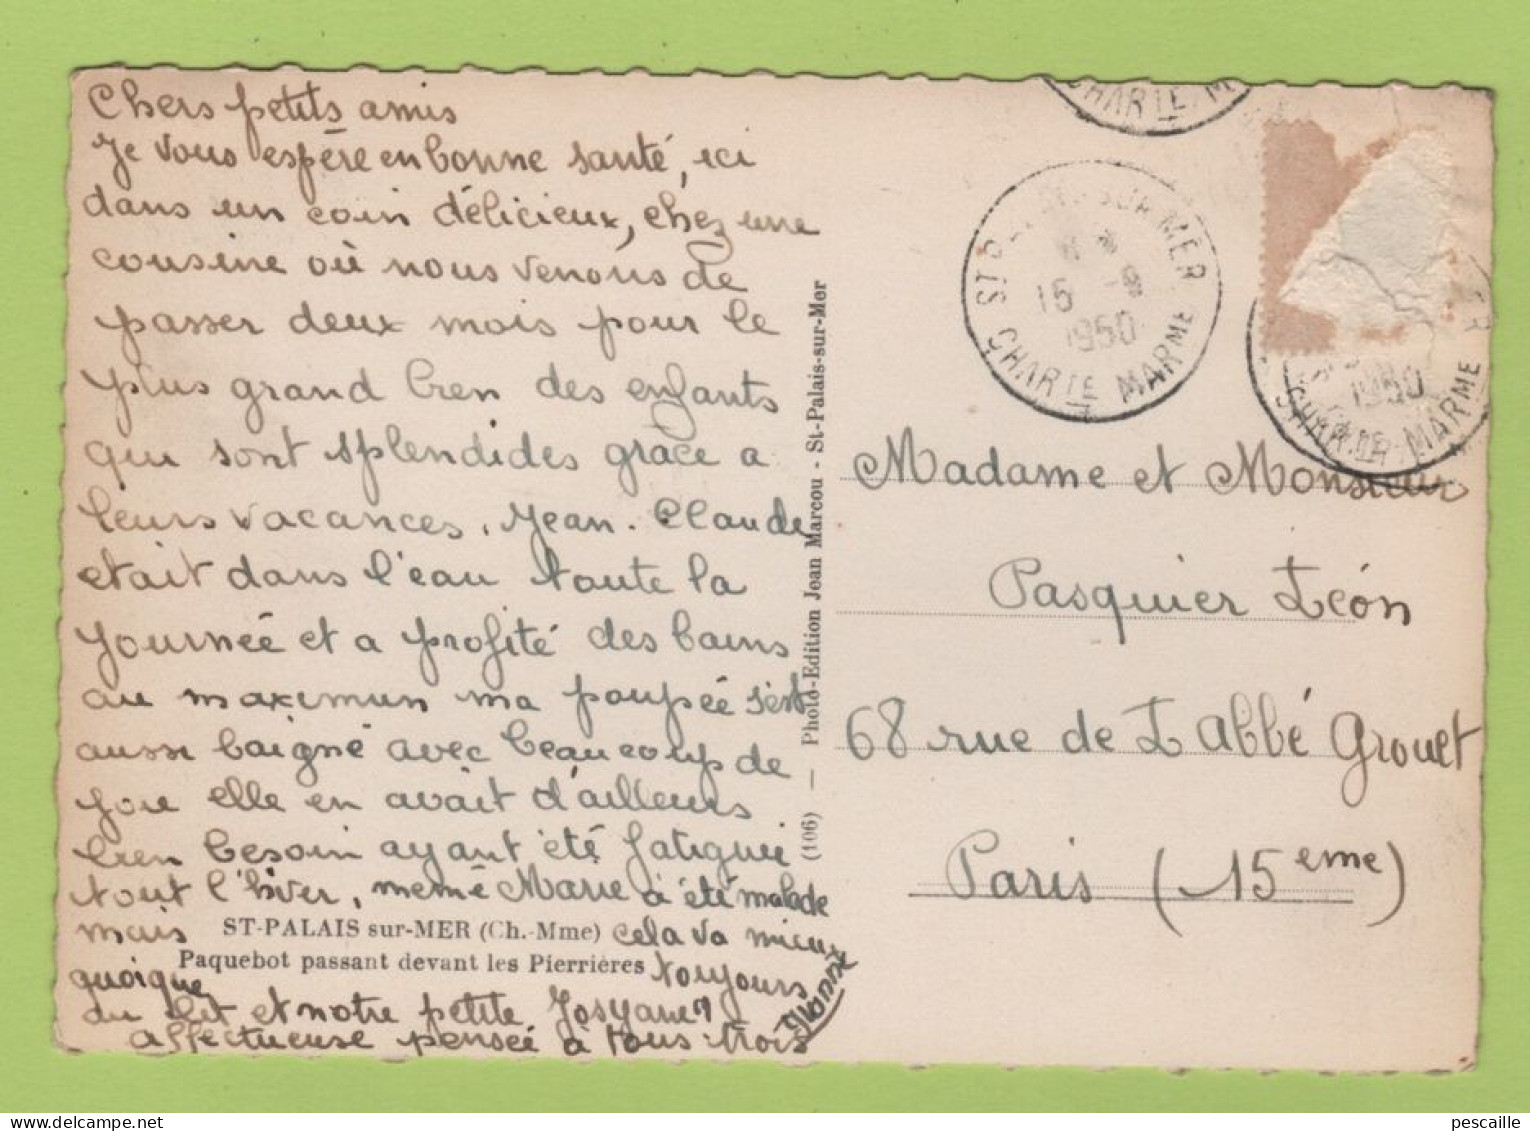 Chers petits amis
Je vous espère en bonne santé, ici
dans un coin délicieux, chez une
cousine où nous venons de
passer deux mois pour le
plus grand bien des enfants
qui sont splendides grace a
leurs vacances. Jean-Claude
etait dans l'eau toute la
journée et a profité des bains
au maximun ma poupée s'est
aussi baigné avec beaucoup de
joie elle en avait d'ailleurs
bien besoin ayant été fatiguée
tout l'hiver, memê Marie à été malade
mais cela va mieux
quoique toujours
au lit et notre petite Josyane?
affectueuse pensée à tous trois
ST-PALAIS sur-MER (Ch.-Mme)
Paquebot passant devant les Pierrières
(106) — Photo-Edition Jean Marcou - St-Palais-sur-Mer
CHARTE. M
ST P SUR MER
15 -9
1950
CHARTE MARME
1950
CHARTE MARME
Madame et Monsieur
Pasquier Léon
68 rue de L'Abbé Grouet
Paris (15eme)
pescaille
delcampe.net